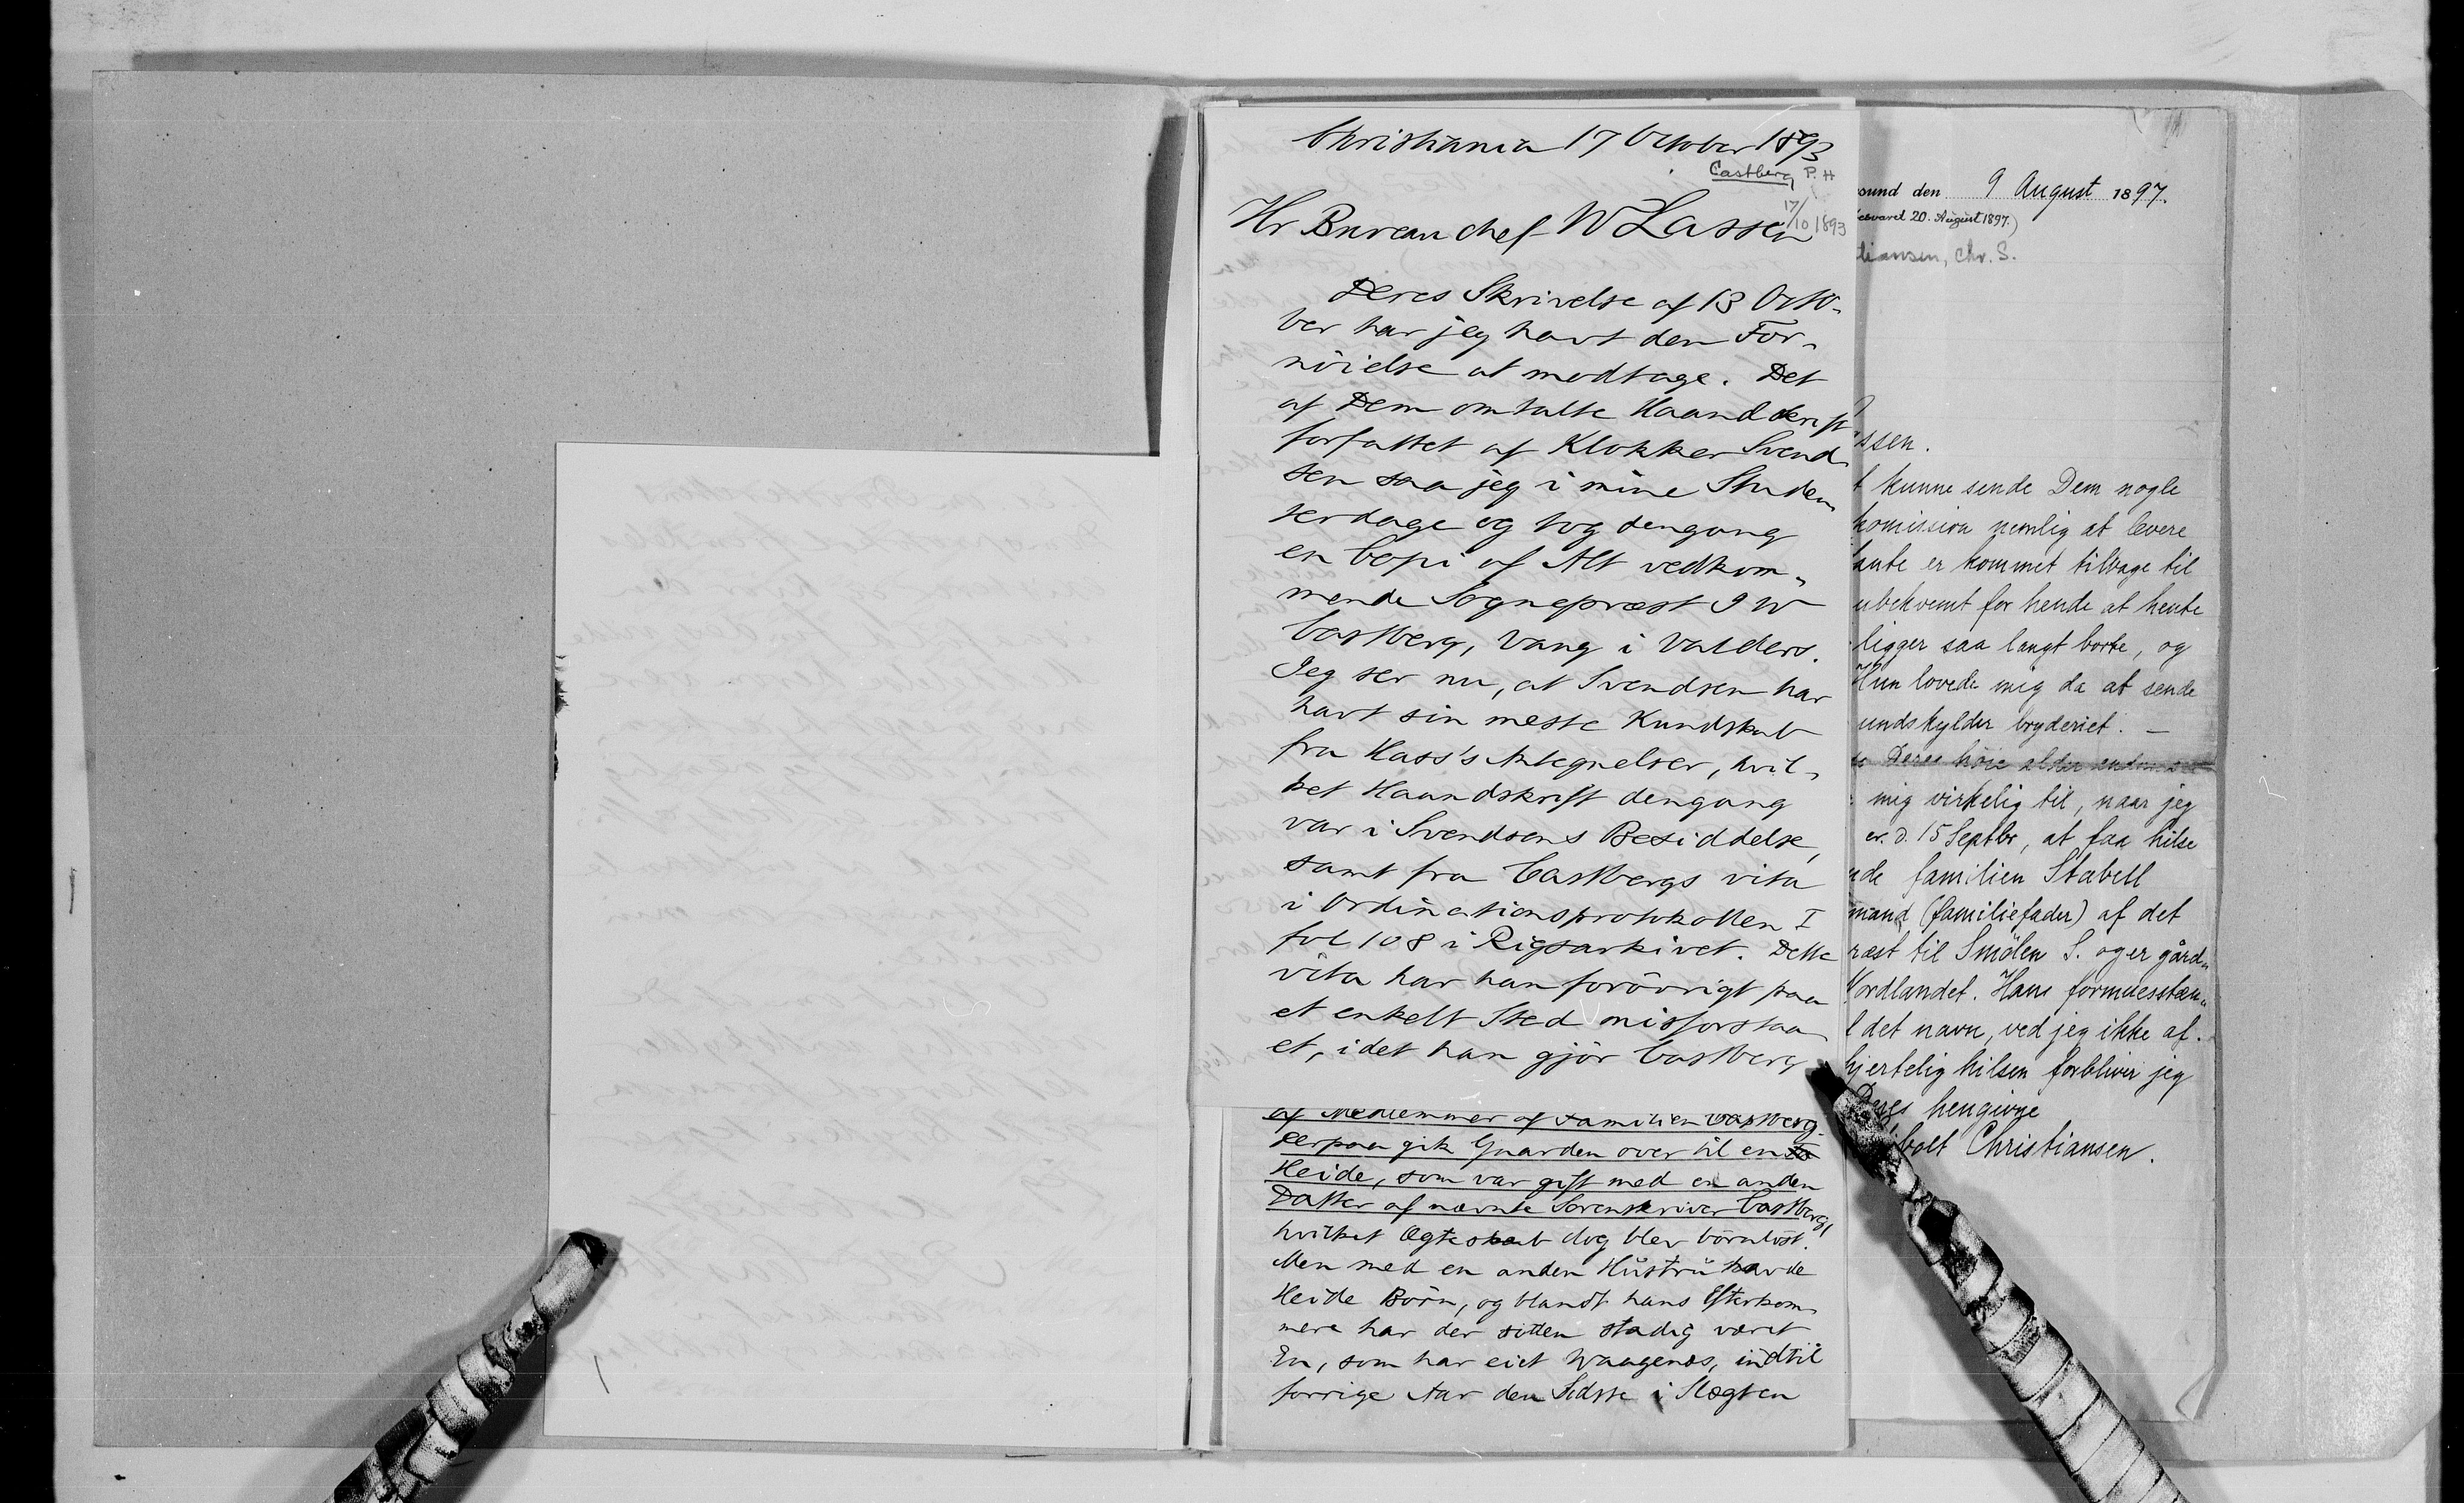 Christiania 17 October 1893
Castberg P. H
17/10 1893
Hr Bureauchef W Lassen
Deres Skrivelse af 13 Octo-
ber har jeg havt den For-
nöielse at modtage. Det
af Dem omtalte Haandskrift
forfattet af Klokker Svend-
sen saa jeg i mine Studen-
terdage og tog dengang
en Copi af Alt vedkom-
mende Sognepræst J W
Castberg, Vang i Valders.
Jeg ser nu, at Svendsen har
havt sin meste Kundskab
fra Hass's Antegnelser, hvil-
ket Haandskrift dengang
var i Svendsens Besiddelse,
samt fra Castbergs vita
i Ordinationsprotokollen I
fol 108 i Rigsarkivet. Dette
vita har han forövrigt paa
et enkelt Sted misforstaa-
et, idet han gjör Castberg
af Medlemmer af Familien Castberg.
Derpaa gik Gaarden over til en
Heide, som var gift med en anden
Datter af nævnte Sorenskriver Castberg,
hvilket Ægteskab dog blev börnlöst.
Men med en anden Hustru havde
Heide Börn, og blandt hans Efterkom-
mere har der siden stadig været
En, som har eiet Waagenes, indtil
forrige Aar den Sidste i Slægten
sund den 9 August 1897.
besvaret 20. August 1897.)
tiansen, Chr. S.
ssen.
t kunne sende Dem nogle
komission nemlig at levere
ante er kommet tilbage til
ubekvemt for hende at hente
ligger saa langt borte, og
Hun lovede mig da at sende
undskylder bryderiet. —
Deres höie alder
mig virkelig til, naar jeg
er. d. 15 Septbr, at faa hilse
de familien Stabell
mand (familiefader) af det
ræst til Smölen S. og er gård-
Nordlandet. Hans formuesstæn-
l det navn, ved jeg ikke af.
hjertelig hilsen forbliver jeg
Deres hengivne
bolt Christiansen.